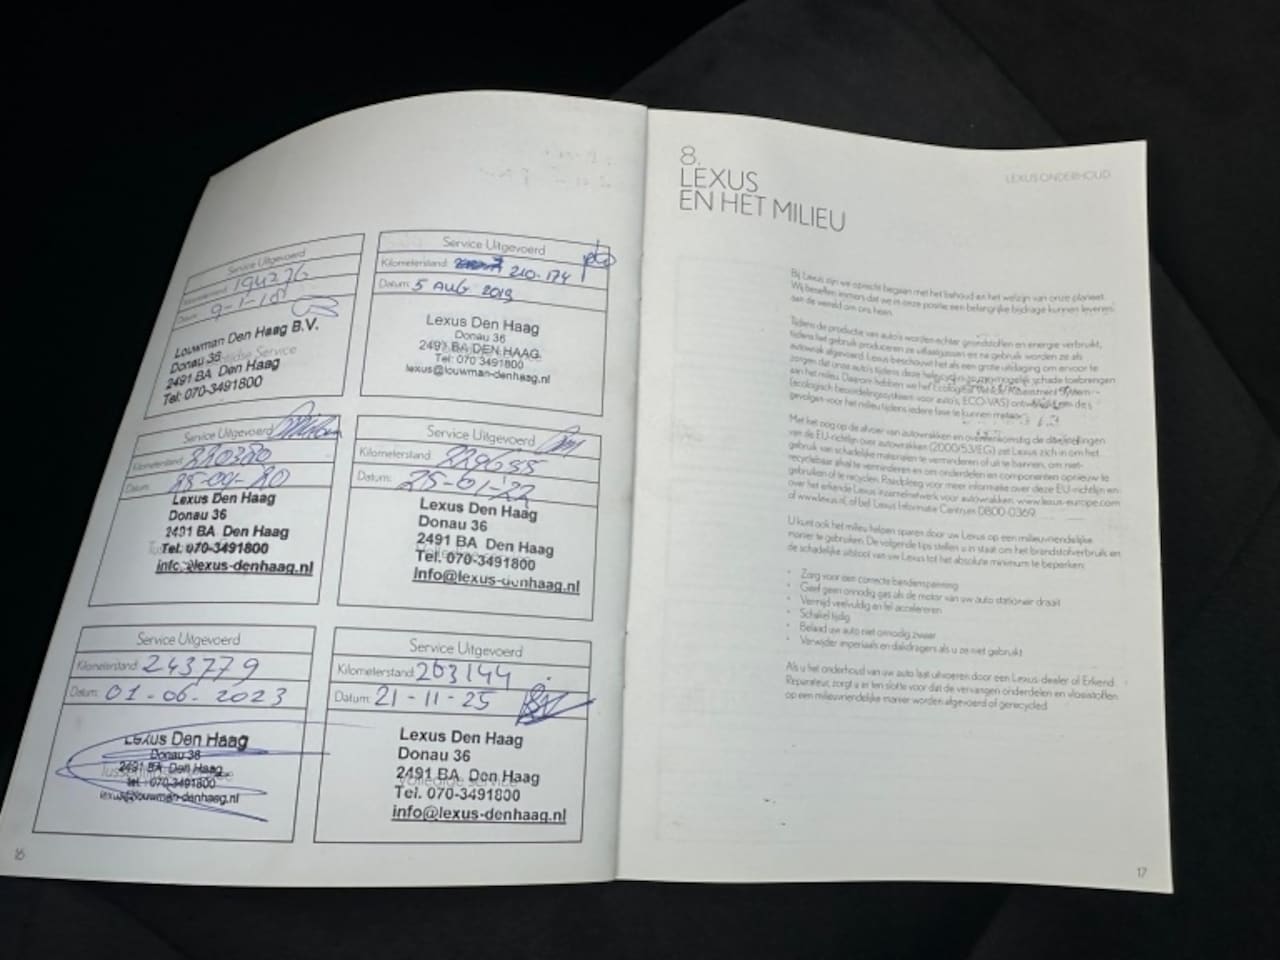 Service Uitgevoerd
Kilometerstand: 194276
Datum: 9-1-18
Louwman Den Haag B.V.
Donau 36
2491 BA Den Haag
Tel: 070-3491800
Service Uitgevoerd
Kilometerstand: 210.174 pto
Datum: 5 AUG 2019
Lexus Den Haag
Donau 36
2491 BA DEN HAAG
Tel: 070 3491800
lexus@louwman-denhaag.nl
Service Uitgevoerd
Kilometerstand: 220380
Datum: 25-09-20
Lexus Den Haag
Donau 36
2491 BA Den Haag
Tel. 070-3491800
info@lexus-denhaag.nl
Service Uitgevoerd
Kilometerstand: 229655
Datum: 25-01-'22
Lexus Den Haag
Donau 36
2491 BA Den Haag
Tel. 070-3491800
Info@lexus-denhaag.nl
Service Uitgevoerd
Kilometerstand: 243779
Datum: 01-06-2023
Lexus Den Haag
Donau 36
2491 BA Den Haag
tel : 070-3491800
lexus@louwman-denhaag.nl
Service Uitgevoerd
Kilometerstand: 263144
Datum: 21-11-25
Lexus Den Haag
Donau 36
2491 BA Den Haag
Volledige service
Tel. 070-3491800
info@lexus-denhaag.nl
16
8.
LEXUS
EN HET MILIEU
LEXUS ONDERHOUD
Bij Lexus zijn we oprecht begaan met het behoud en het welzijn van onze planeet.
Wij beseffen immers dat we in onze positie een belangrijke bijdrage kunnen leveren
aan de wereld om ons heen.
Tijdens de productie van auto's worden echter grondstoffen en energie verbruikt,
tijdens het gebruik produceren ze uitlaatgassen en na gebruik worden ze als
autowrak afgevoerd. Lexus beschouwt het als een grote uitdaging om ervoor te
zorgen dat onze auto's tijdens deze zo mogelijk schade toebrengen
aan het milieu. Daarom hebben we het Ecological Assessment System
(ecologisch beoordelingssysteem voor auto's, ECO-VAS) ontwikkeld om de
gevolgen voor het milieu tijdens iedere fase te kunnen meten.
Met het oog op de afvoer van autowrakken en overeenkomstig de doelstellingen
van de EU-richtlijn over autowrakken (2000/53/EG) zet Lexus zich in om het
gebruik van schadelijke materialen te verminderen of uit te bannen, om niet-
recyclebaar afval te verminderen en om onderdelen en componenten opnieuw te
gebruiken of te recyclen. Raadpleeg voor meer informatie over deze EU-richtlijn en
over het erkende Lexus inzamelnetwerk voor autowrakken: www.lexus-europe.com
of www.lexus.nl, of bel: Lexus Informatie Centrum 0800-0369.
U kunt ook het milieu helpen sparen door uw Lexus op een milieuvriendelijke
manier te gebruiken. De volgende tips stellen u in staat om het brandstofverbruik en
de schadelijke uitstoot van uw Lexus tot het absolute minimum te beperken:
• Zorg voor een correcte bandenspanning
• Geef geen onnodig gas als de motor van uw auto stationair draait
• Vermijd veelvuldig en fel accelereren
• Schakel tijdig
• Belaad uw auto niet onnodig zwaar
• Verwijder imperiaals en dakdragers als u ze niet gebruikt
Als u het onderhoud van uw auto laat uitvoeren door een Lexus-dealer of Erkend
Reparateur, zorgt u er ten slotte voor dat de vervangen onderdelen en vloeistoffen
op een milieuvriendelijke manier worden afgevoerd of gerecycled.
17